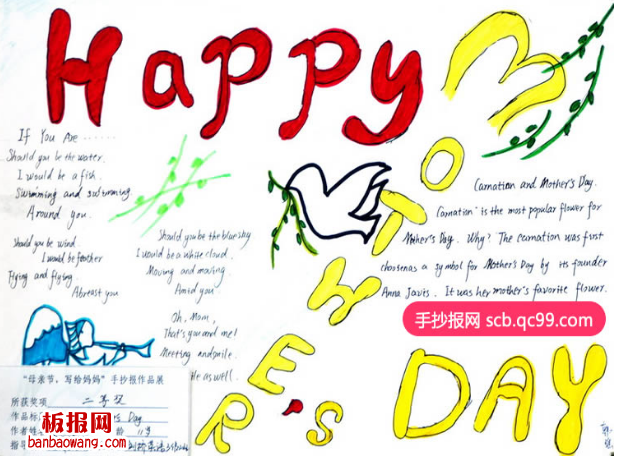 Happy
MOTHER'S
DAY
If You Are ......
Should you be the water.
I would be a fish.
Swimming and swimming
Around you.
Should you be wind
I would be feather
Flying and flying.
Abreast you
Should you be the blue sky
I would be a white cloud.
Moving and moving.
Amid you
Oh, Mom,
That's you and me!
Meeting and
as well.
Carnation and Mother's Day.
Carnation is the most popular flower for
Mother's Day. Why? The carnation was first
choosen as a symbol for Mother's Day by its founder
Anna Javis. It was her mother's favorite flower.
手抄报网 scb.qc99.com
“母亲节，写给妈妈”手抄报作品展
所获奖项 二等奖
作品标 's Day
作者姓
指导
板报网
banbaowang.com